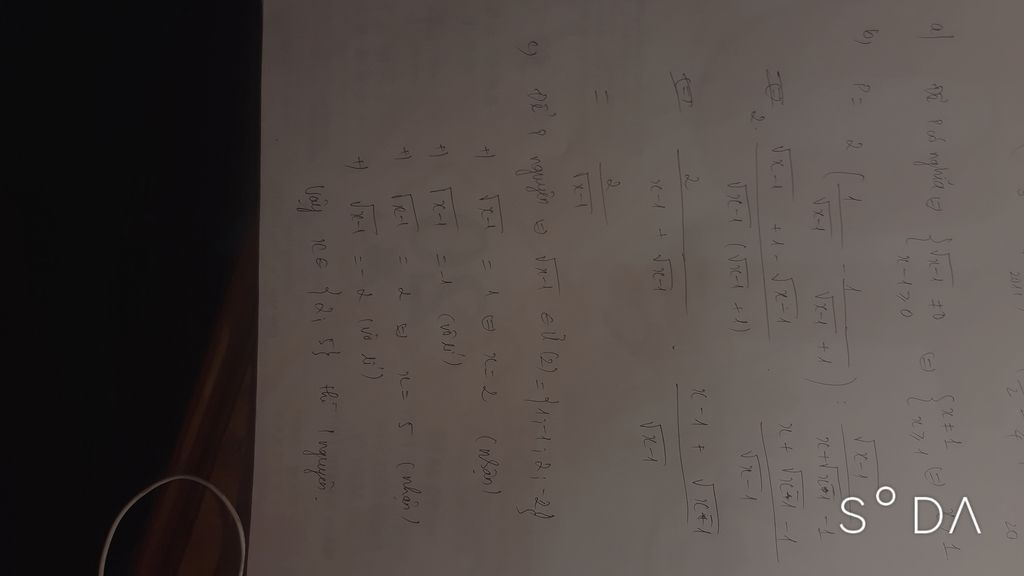 a) Để P có nghĩa ⇔ { √x-1 ≠ 0 ⇔ { x ≠ 1 ⇔
x-1 ≥ 0 x ≥ 1
b) P = 2 ( 1/√x-1 - 1/√x-1 + 1 ) : √x-1 / x+√x-1 -1
2. √x-1 + 1 - √x-1 / √x-1 (√x-1 + 1) x + √x-1 - 1 / √x-1
2 / x-1 + √x-1 . x-1 + √x-1 / √x-1
= 2 / √x-1
c) Để P nguyên ⇔ √x-1 ∈ Ư(2) = {1; -1; 2; -2}
+) √x-1 = 1 ⇔ x = 2 (nhận)
+) √x-1 = -1 (vô lí)
+) √x-1 = 2 ⇔ x = 5 (nhận)
+) √x-1 = -2 (vô lí)
Vậy x ∈ {2; 5} thì P nguyên.
S°DA